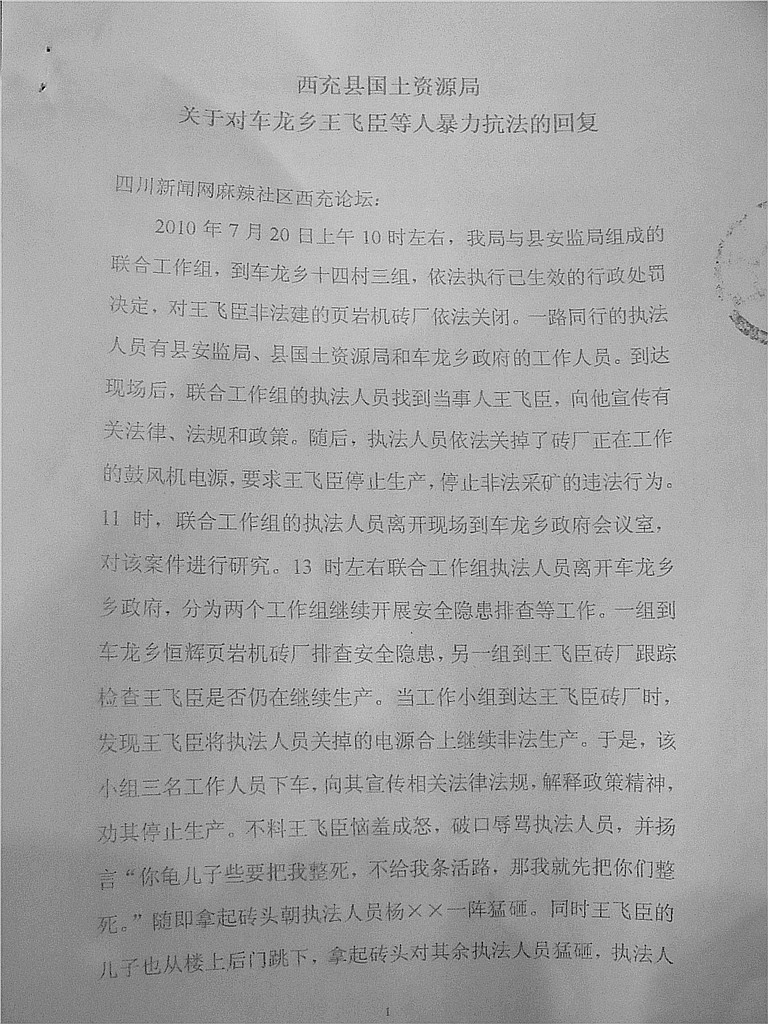 西充县国土资源局
关于对车龙乡王飞臣等人暴力抗法的回复
四川新闻网麻辣社区西充论坛:
2010 年 7 月 20 日上午 10 时左右，我局与县安监局组成的
联合工作组，到车龙乡十四村三组，依法执行已生效的行政处罚
决定，对王飞臣非法建的页岩机砖厂依法关闭。一路同行的执法
人员有县安监局、县国土资源局和车龙乡政府的工作人员。到达
现场后，联合工作组的执法人员找到当事人王飞臣，向他宣传有
关法律、法规和政策。随后，执法人员依法关掉了砖厂正在工作
的鼓风机电源，要求王飞臣停止生产，停止非法采矿的违法行为。
11 时，联合工作组的执法人员离开现场到车龙乡政府会议室，
对该案件进行研究。13 时左右联合工作组执法人员离开车龙乡
乡政府，分为两个工作组继续开展安全隐患排查等工作。一组到
车龙乡恒辉页岩机砖厂排查安全隐患，另一组到王飞臣砖厂跟踪
检查王飞臣是否仍在继续生产。当工作小组到达王飞臣砖厂时，
发现王飞臣将执法人员关掉的电源合上继续非法生产。于是，该
小组三名工作人员下车，向其宣传相关法律法规，解释政策精神，
劝其停止生产。不料王飞臣恼羞成怒，破口辱骂执法人员，并扬
言“你龟儿子些要把我整死，不给我条活路，那我就先把你们整
死。”随即拿起砖头朝执法人员杨××一阵猛砸。同时王飞臣的
儿子也从楼上后门跳下，拿起砖头对其余执法人员猛砸，执法人
1